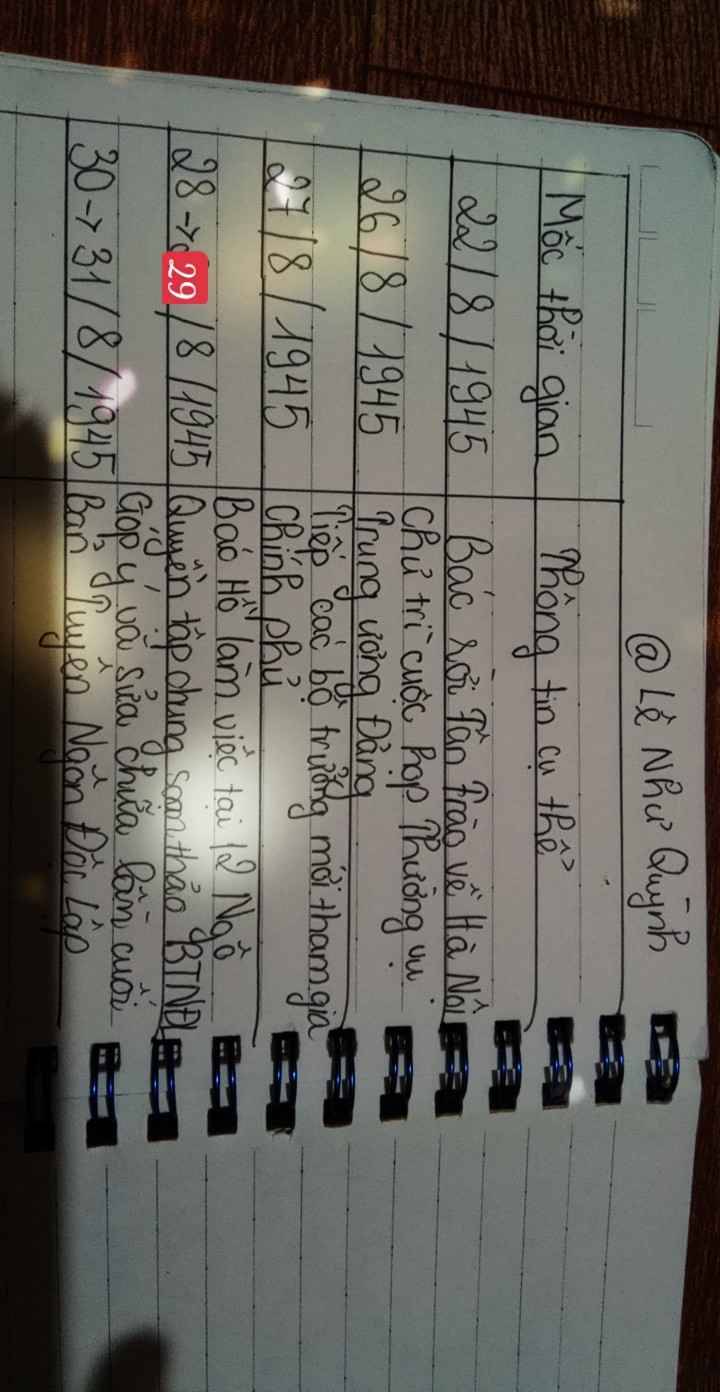 @ Lê Như Quỳnh
Mốc thời gian
Thông tin cụ thể
22/8/1945
Bác rời Tân Trào về Hà Nội
26/8/1945
Chủ trì cuộc họp Thường vụ
Trung ương Đảng
27/8/1945
Tiếp các bộ trưởng mới tham gia
Chính phủ
28 → 29/8/1945
Bác Hồ làm việc tại 12 Ngô
Quyền tập chung soạn thảo BTNĐL
30 → 31/8/1945
Góp ý và sửa chữa lần cuối
Bản Tuyên Ngôn Độc Lập